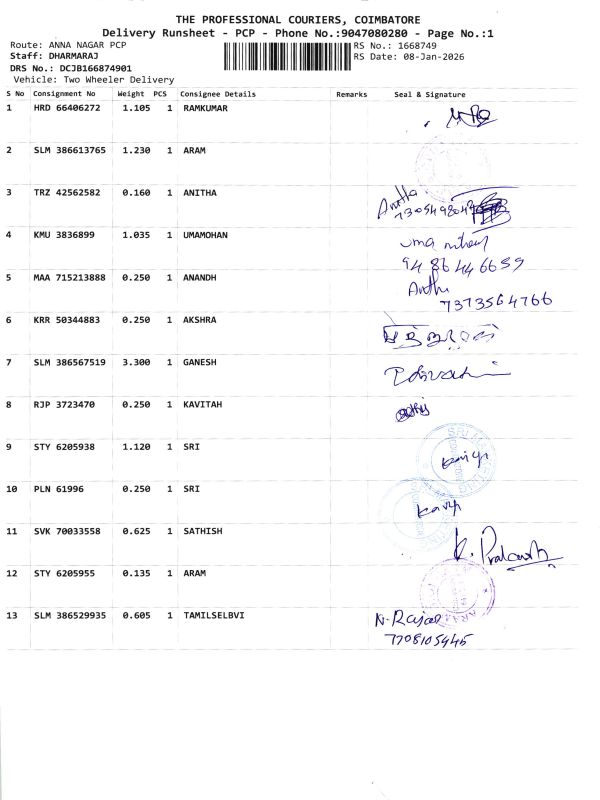 THE PROFESSIONAL COURIERS, COIMBATORE
Delivery Runsheet - PCP - Phone No.:9047080280 - Page No.:1
Route: ANNA NAGAR PCP RS No.: 1668749
Staff: DHARMARAJ RS Date: 08-Jan-2026
DRS No.: DCJB166874901
Vehicle: Two Wheeler Delivery
S No Consignment No Weight PCS Consignee Details Remarks Seal & Signature
1 HRD 66406272 1.105 1 RAMKUMAR
2 SLM 386613765 1.230 1 ARAM
3 TRZ 42562582 0.160 1 ANITHA Anitha
4 KMU 3836899 1.035 1 UMAMOHAN uma
9486446659
5 MAA 715213888 0.250 1 ANANDH
7373564766
6 KRR 50344883 0.250 1 AKSHRA
7 SLM 386567519 3.300 1 GANESH
8 RJP 3723470 0.250 1 KAVITAH
9 STY 6205938 1.120 1 SRI
10 PLN 61996 0.250 1 SRI
11 SVK 70033558 0.625 1 SATHISH K. Prakash
12 STY 6205955 0.135 1 ARAM
13 SLM 386529935 0.605 1 TAMILSELBVI N. Rajas
7708105445